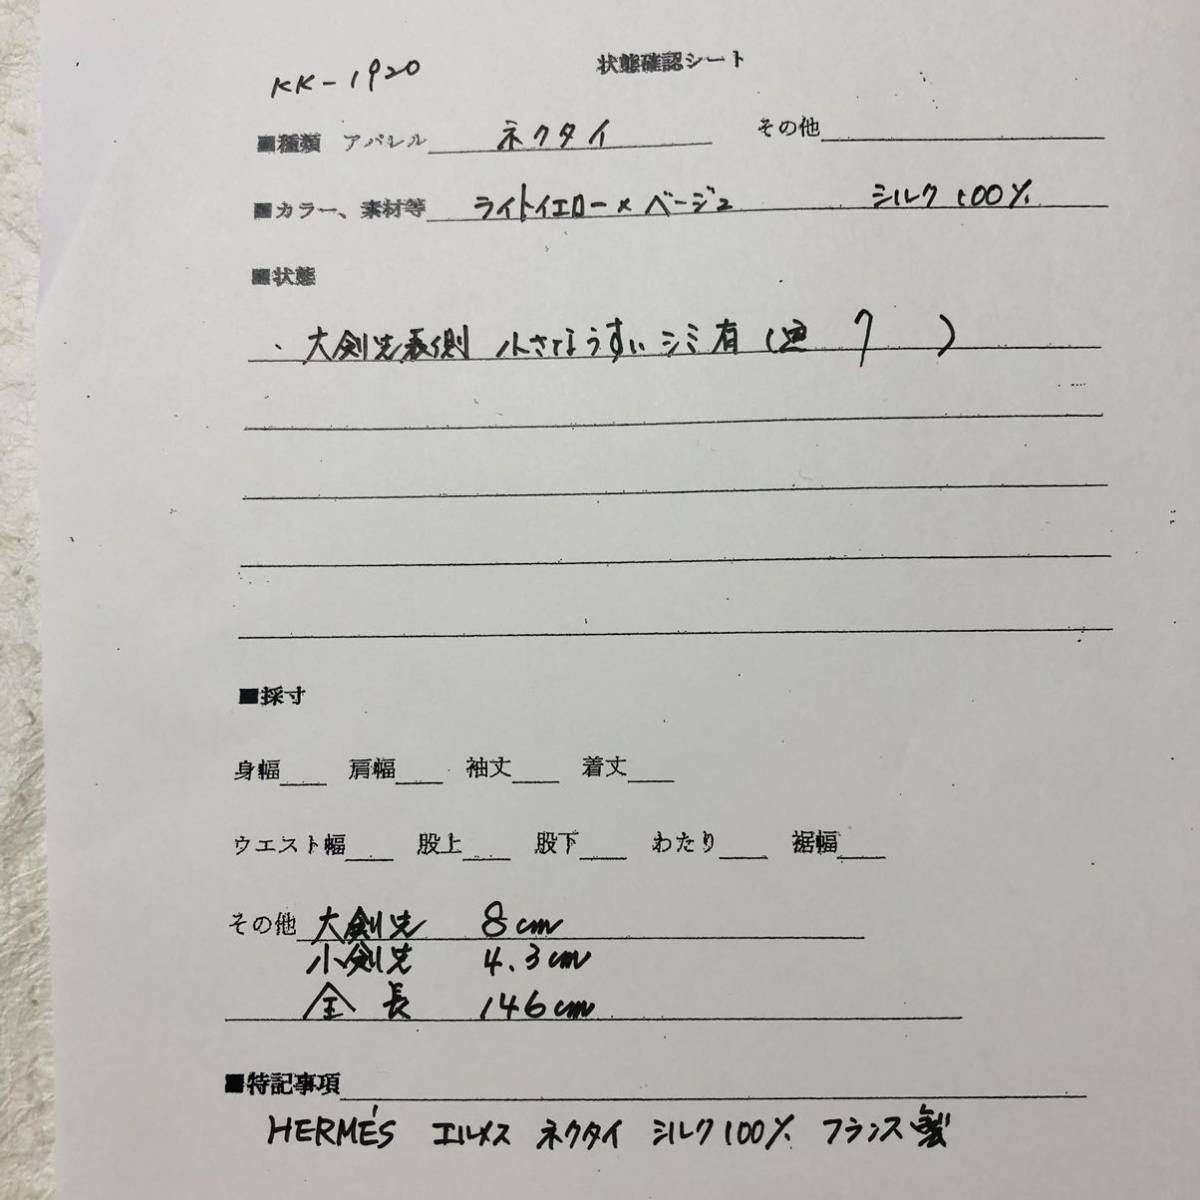 KK-1920 状態確認シート
■種類 アパレル ネクタイ その他
■カラー、素材等 ライトイエロー×ベージュ シルク100%
■状態
・大剣先裏側 小さなうすいシミ有( 7 )
■採寸
身幅 肩幅 袖丈 着丈
ウエスト幅 股上 股下 わたり 裾幅
その他 大剣先 8cm
小剣先 4.3cm
全長 146cm
■特記事項
HERMÉS エルメス ネクタイ シルク100% フランス製